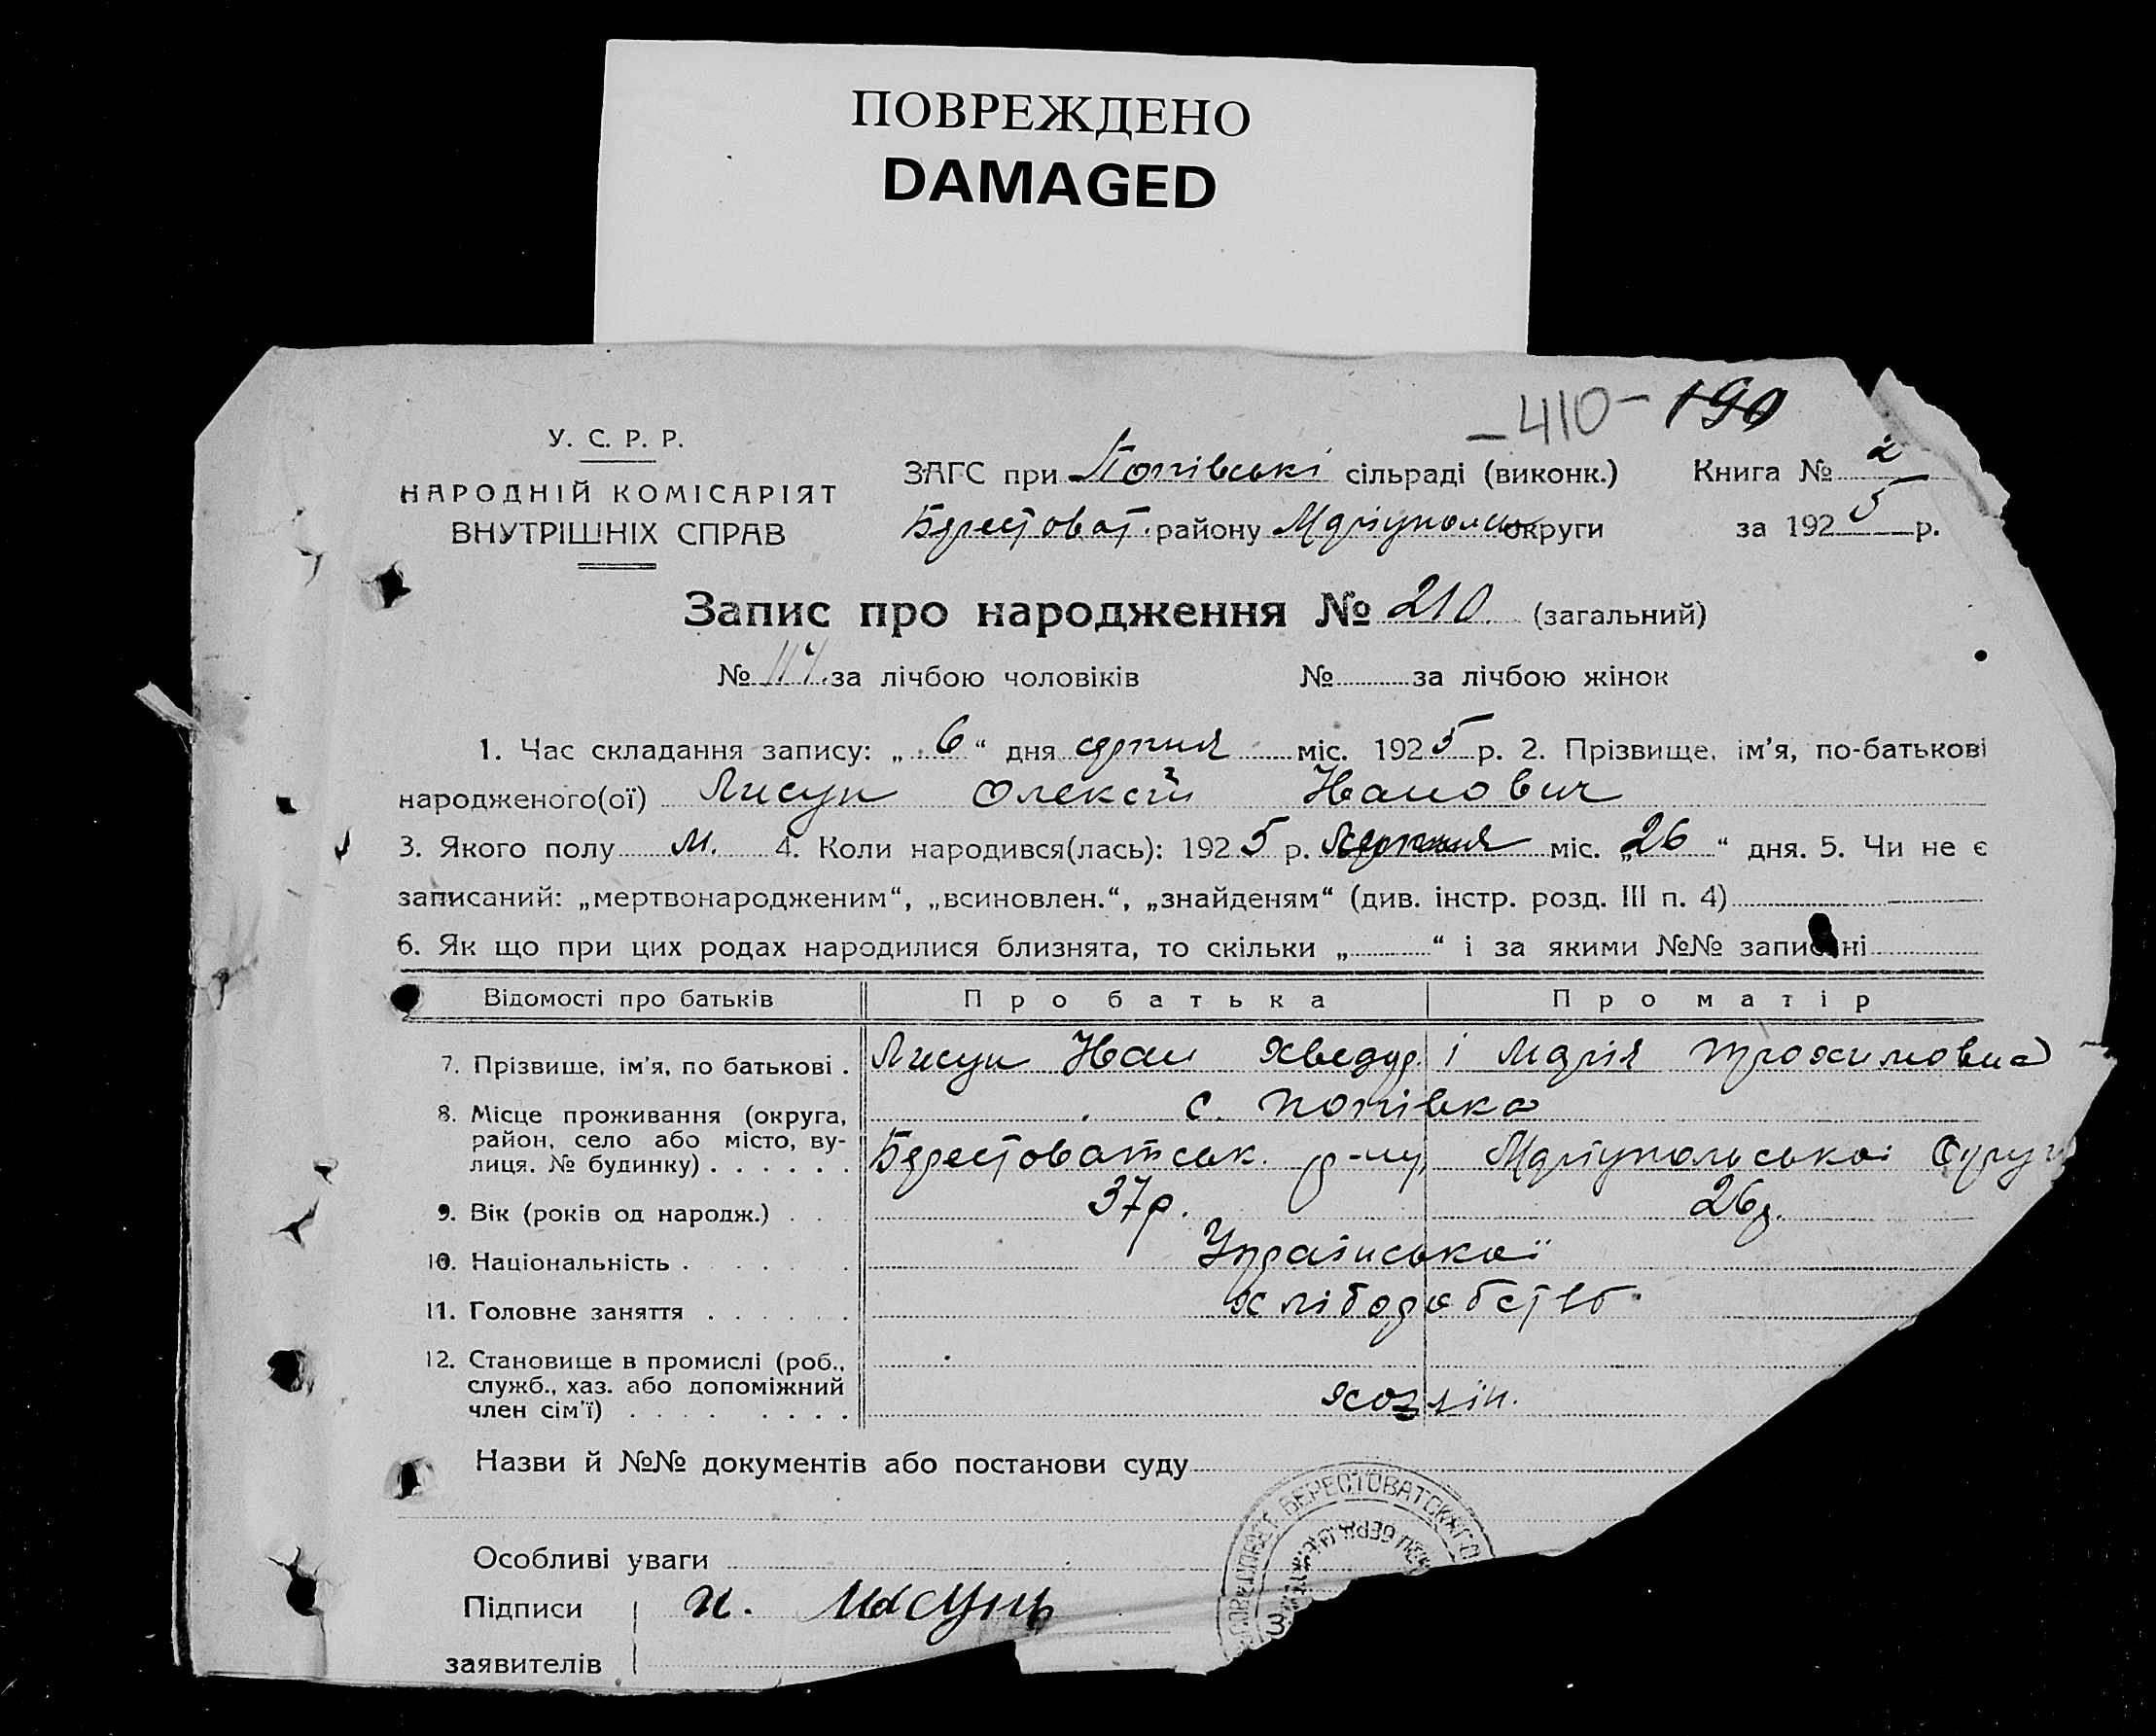 ПОВРЕЖДЕНО
DAMAGED
—410— 190
У. С. Р. Р.
НАРОДНІЙ КОМІСАРІЯТ
ВНУТРІШНІХ СПРАВ
ЗАГС при Попівські сільраді (виконк.) Книга № 2
Берестоват. району Маріупольс округи за 1925 р.
Запис про народження № 210. (загальний)
№ 117. за лічбою чоловіків № за лічбою жінок
1. Час складання запису: „6“ дня серпня міс. 1925 р. 2. Прізвище, ім’я, по-батькові
народженого(ої) Лисун Олексій Иванович
3. Якого полу м. 4. Коли народився(лась): 1925 р. міс. „26“ дня. 5. Чи не є
записаний: „мертвонародженим“, „всиновлен.“, „знайденям“ (див. інстр. розд. III п. 4)
6. Як що при цих родах народилися близнята, то скільки „ “ і за якими №№ записані
Відомості про батьків Про батька Про матір
7. Прізвище, ім’я, по батькові . Лисун Иван Хведор. і Марія Трохимовна
8. Місце проживання (округа, с. Попівка
район, село або місто, ву-
лиця, № будинку) . . . . . . Берестоватськ. р-ну, Маріупольськоі Округ
9. Вік (років од народж.) . . . 37р. 26р.
10. Національність . . . . . . Украінської
11. Головне заняття . . . . . . хліборобство
12. Становище в промислі (роб.,
служб., хаз. або допоміжний
член сім’ї) . . . . . . . . хозяїн.
Назви й №№ документів або постанови суду
БЕРЕСТОВАТСКАГО
Особливі уваги
Підписи И. Лысунь
заявителів